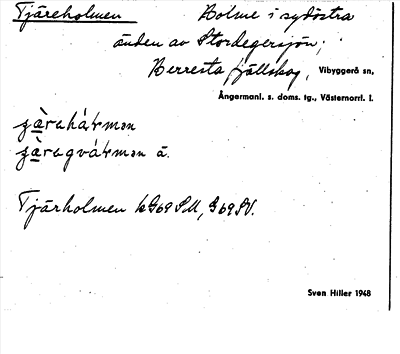 Tjäreholmen Holme i sydöstra
änden av Stordegersjön;
Berresta fjällskog, Vibyggerå sn,
Ångermanl. s. doms. tg., Västernorrl. l.
Tjärholmen kG69SM, G69SV.
Sven Hiller 1948